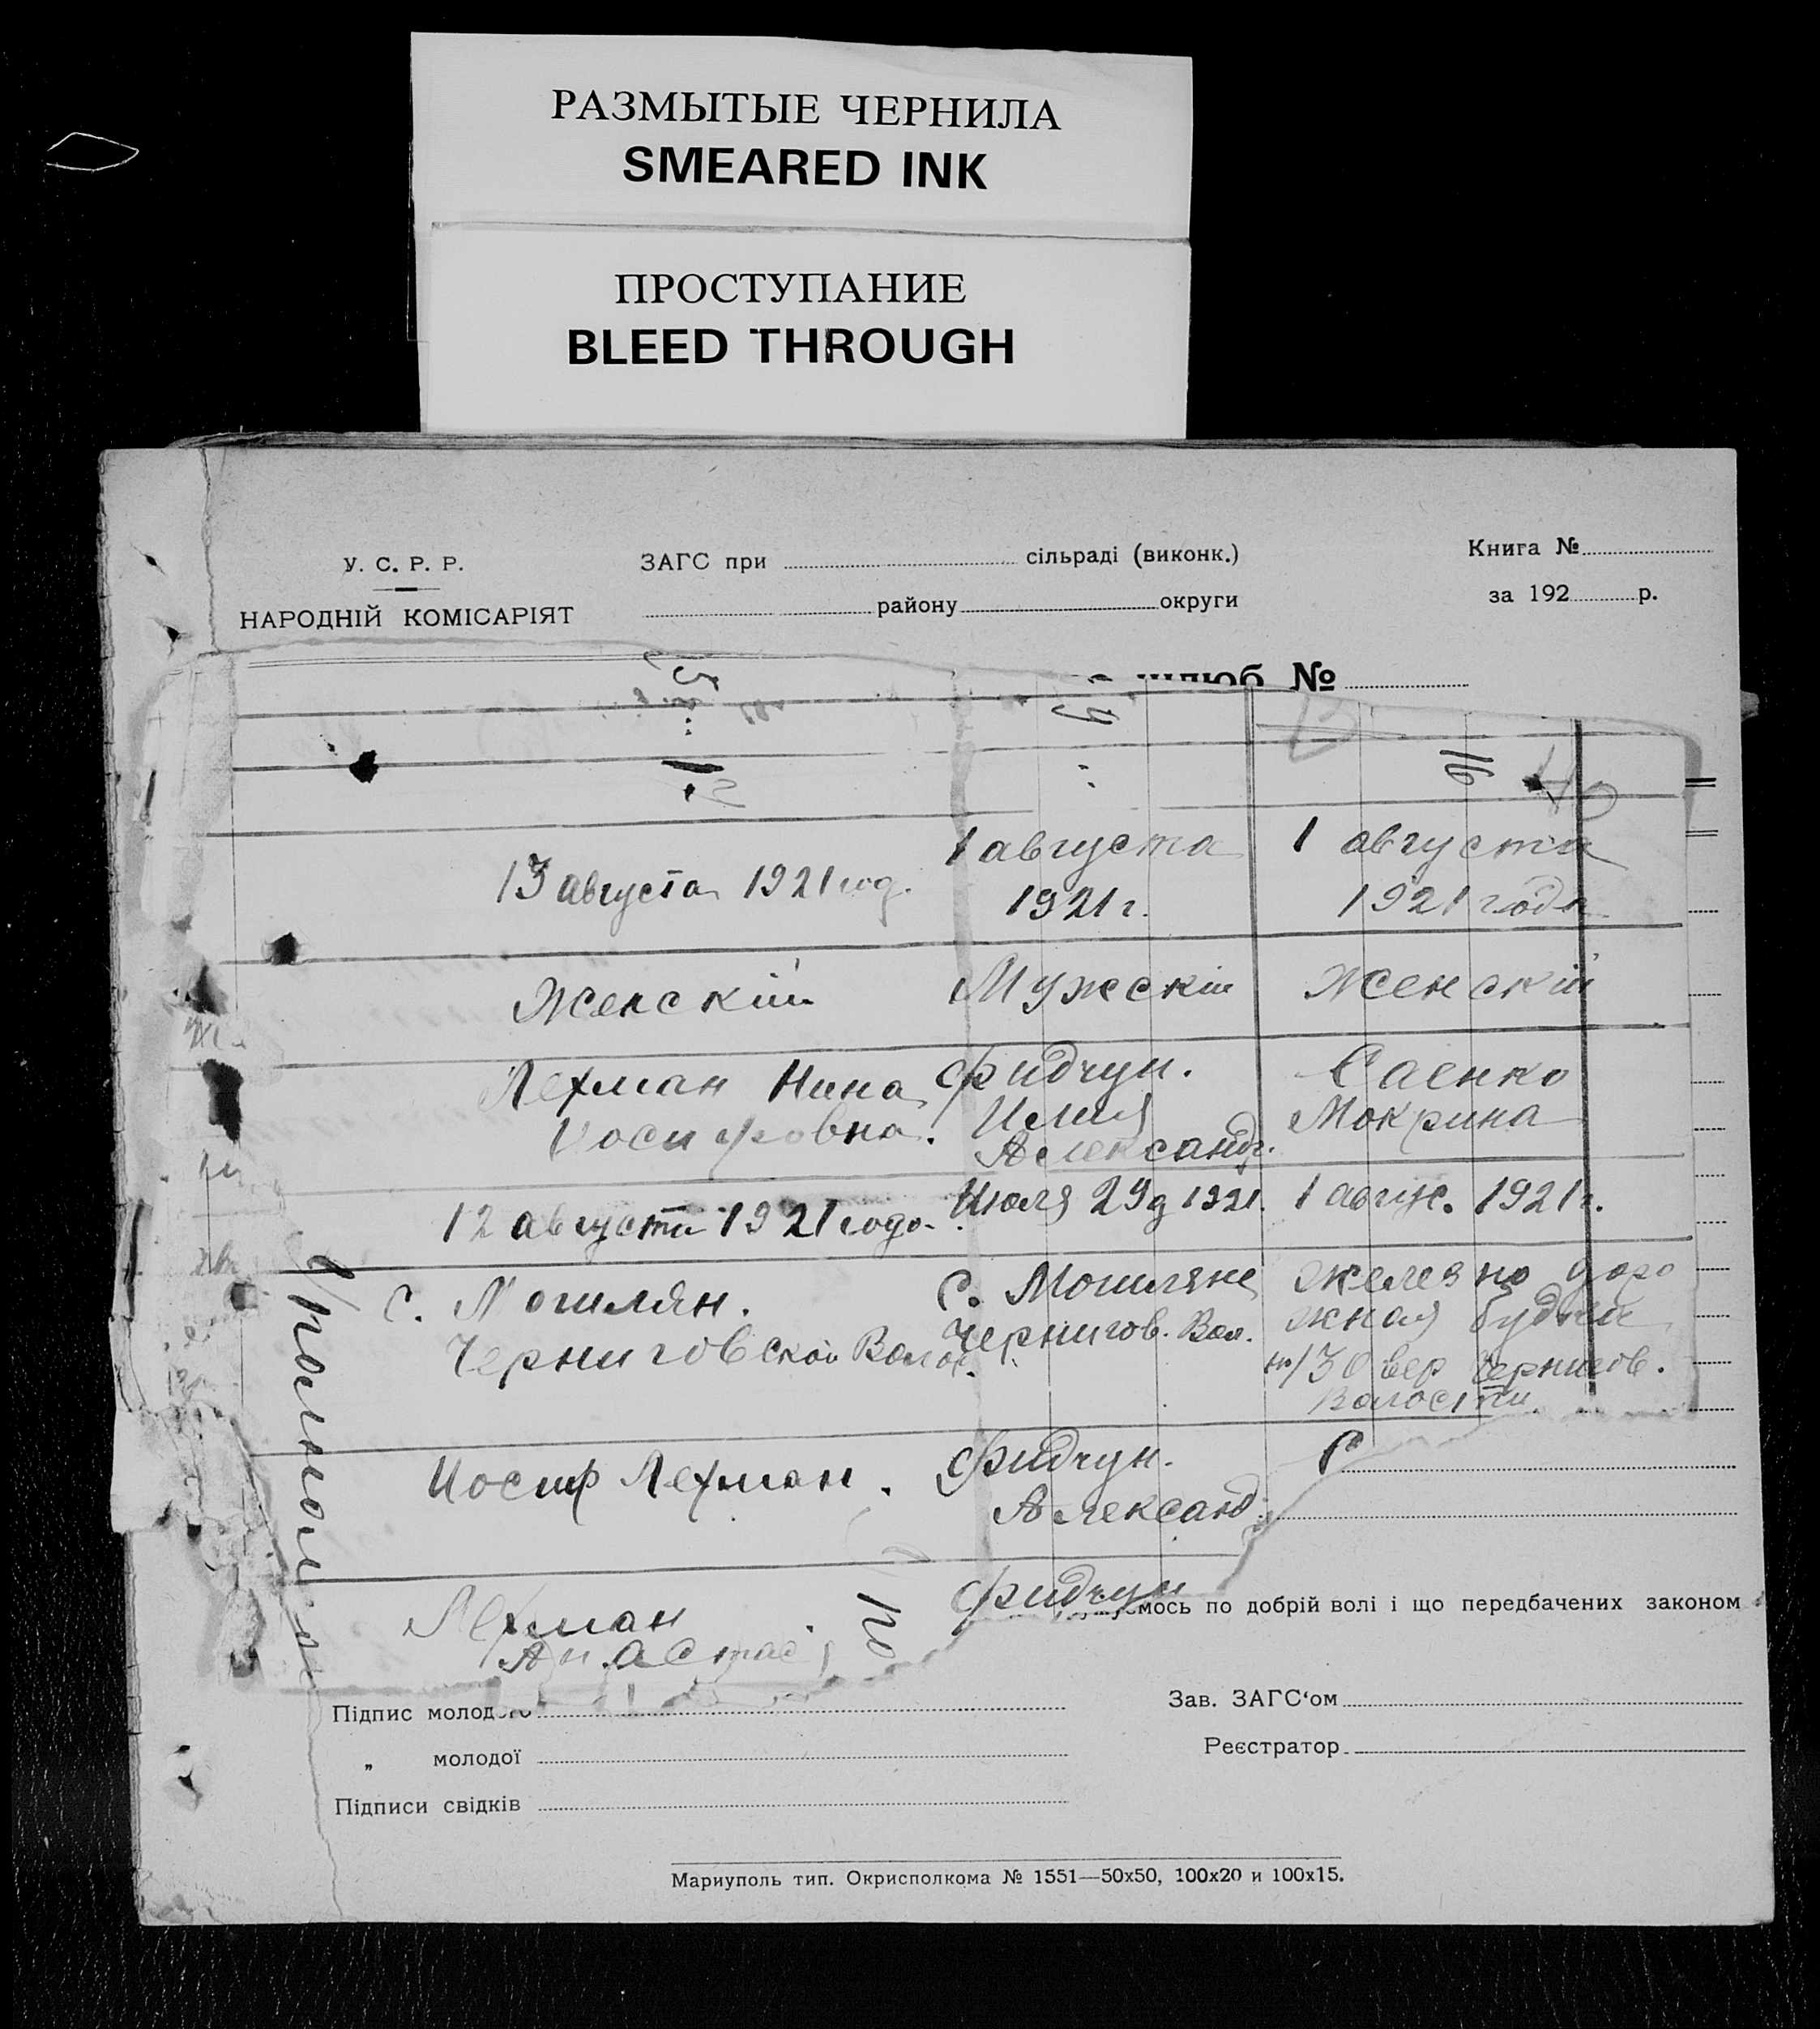 РАЗМЫТЫЕ ЧЕРНИЛА
SMEARED INK
ПРОСТУПАНИЕ
BLEED THROUGH
У. С. Р. Р.
НАРОДНІЙ КОМІСАРІЯТ
ЗАГС при сільраді (виконк.)
району округи
Книга №
за 192 р.
шлюб №
16
13 августа 1921 год.
1 августа
1921 г.
1 августа
1921 года
Женскій
Мужскій
Женскій
Лехман Нина
Иосифовна.
Фидчун.
Илия
Александр.
Саенко
Мокрина
12 августа 1921 года
Июля 29 д 1921.
1 авгус. 1921 г.
С. Могилян.
Черниговской Волос.
С. Могиляне
Чернигов. Вол.
железно доро
жная будка
130 вер Чернигов.
Волости
Иосиф Лехман.
Фидчун.
Александ
С
Лехман
Анастас
Фидчун
ємось по добрій волі і що передбачених законом
Підпис молодого
„ молодої
Підписи свідків
Зав. ЗАГС‘ом
Реєстратор
Мариуполь тип. Окрисполкома № 1551—50х50, 100х20 и 100х15.